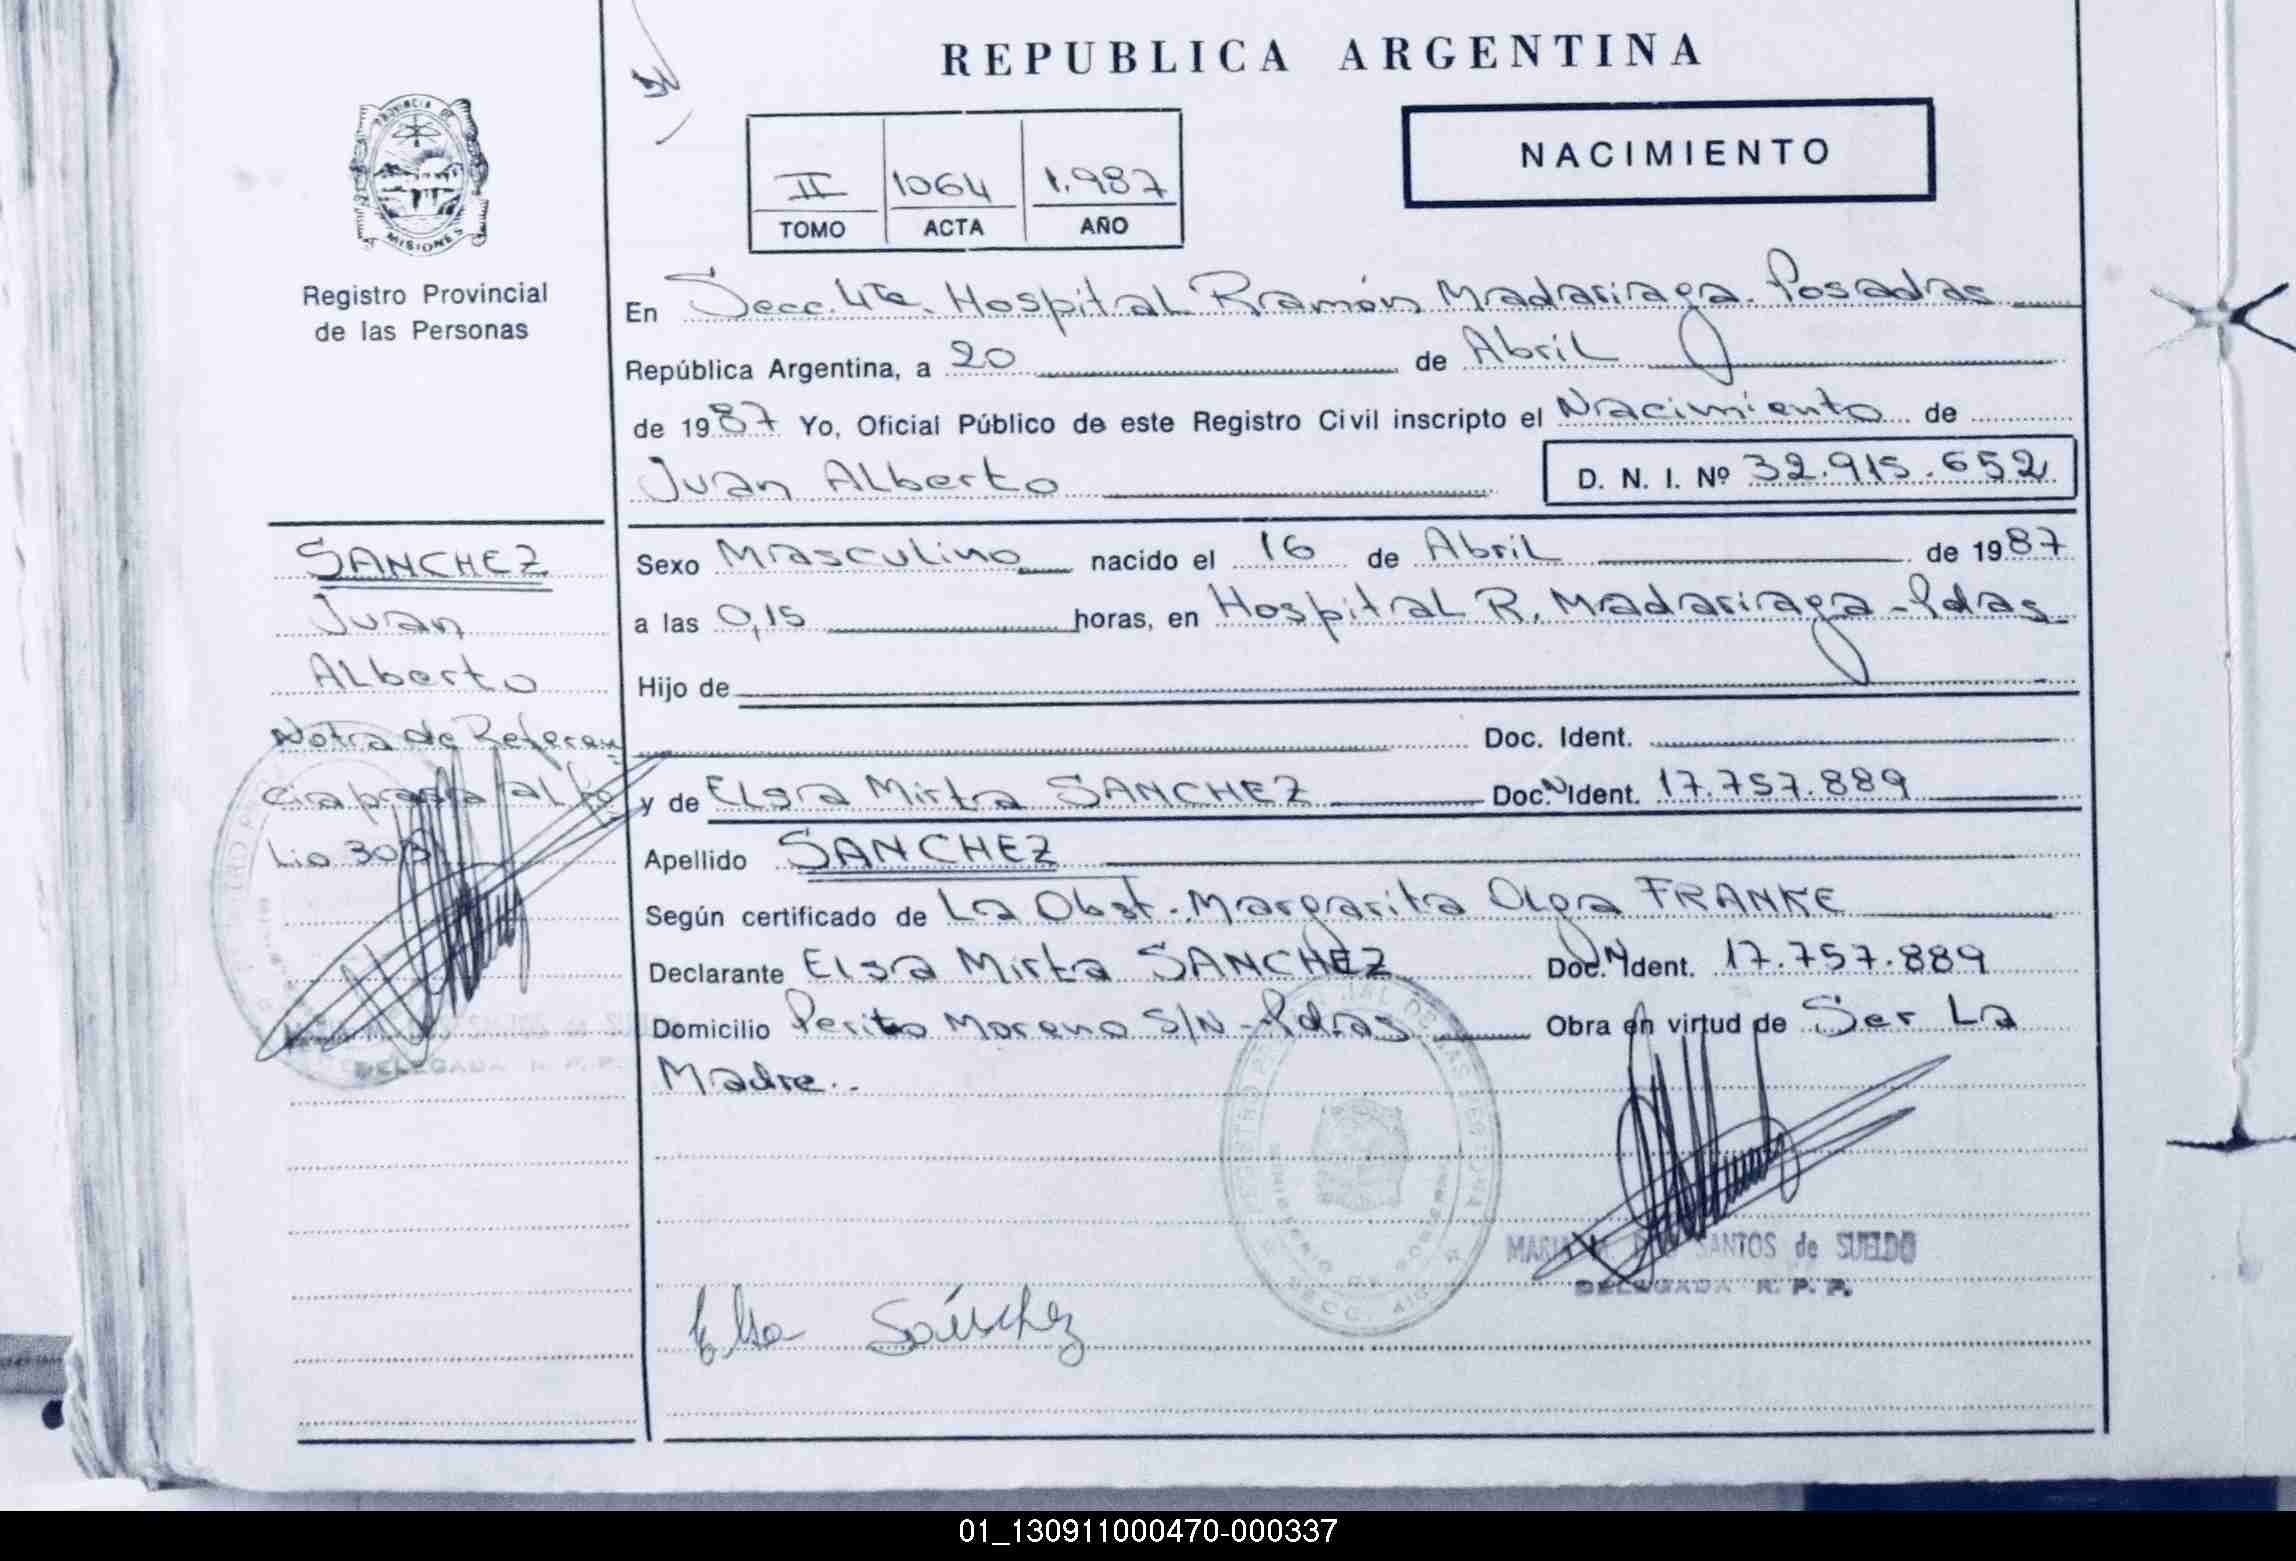 REPUBLICA ARGENTINA
PROVINCIA DE
MISIONES
Registro Provincial
de las Personas
II 1064 1.987
TOMO ACTA AÑO
NACIMIENTO
En Secc. 4ta. Hospital Ramón Madariaga. Posadas
República Argentina, a 20 de Abril
de 1987 Yo, Oficial Público de este Registro Civil inscripto el Nacimiento de
Juan Alberto D. N. I. Nº 32.915.652
Sexo Masculino nacido el 16 de Abril de 1987
a las 0,15 horas, en Hospital R. Madariaga - Pdas
Hijo de
Doc. Ident.
y de Elsa Mirta SANCHEZ Doc. N Ident. 17.757.889
Apellido SANCHEZ
Según certificado de La Obst. Margarita Olga FRANKE
Declarante Elsa Mirta SANCHEZ Doc. N Ident. 17.757.889
Domicilio Perito Moreno S/N - Pdas Obra en virtud de Ser La
Madre..
SANCHEZ
Juan
Alberto
Nota de Referen
cia al fo
lio
DELEGADA R. P. P.
MARIA SANTOS de SUELDO
DELEGADA R. P. P.
Elsa Sánchez
01_130911000470-000337